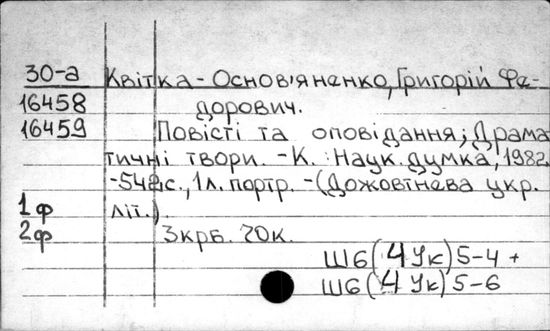 30-а Квітка-Основ'яненко, Григорій Фе-
16458 дорович.
16459 Повісті та оповідання; Драма
тичні твори. -К.: Наук. думка, 1982.
-542с., 1л. портр. -(Дожовтнева укр.
1ф літ.).
2ф 3крб. 70к.
Ш6(4Ук)5-4 +
Ш6(4Ук)5-6